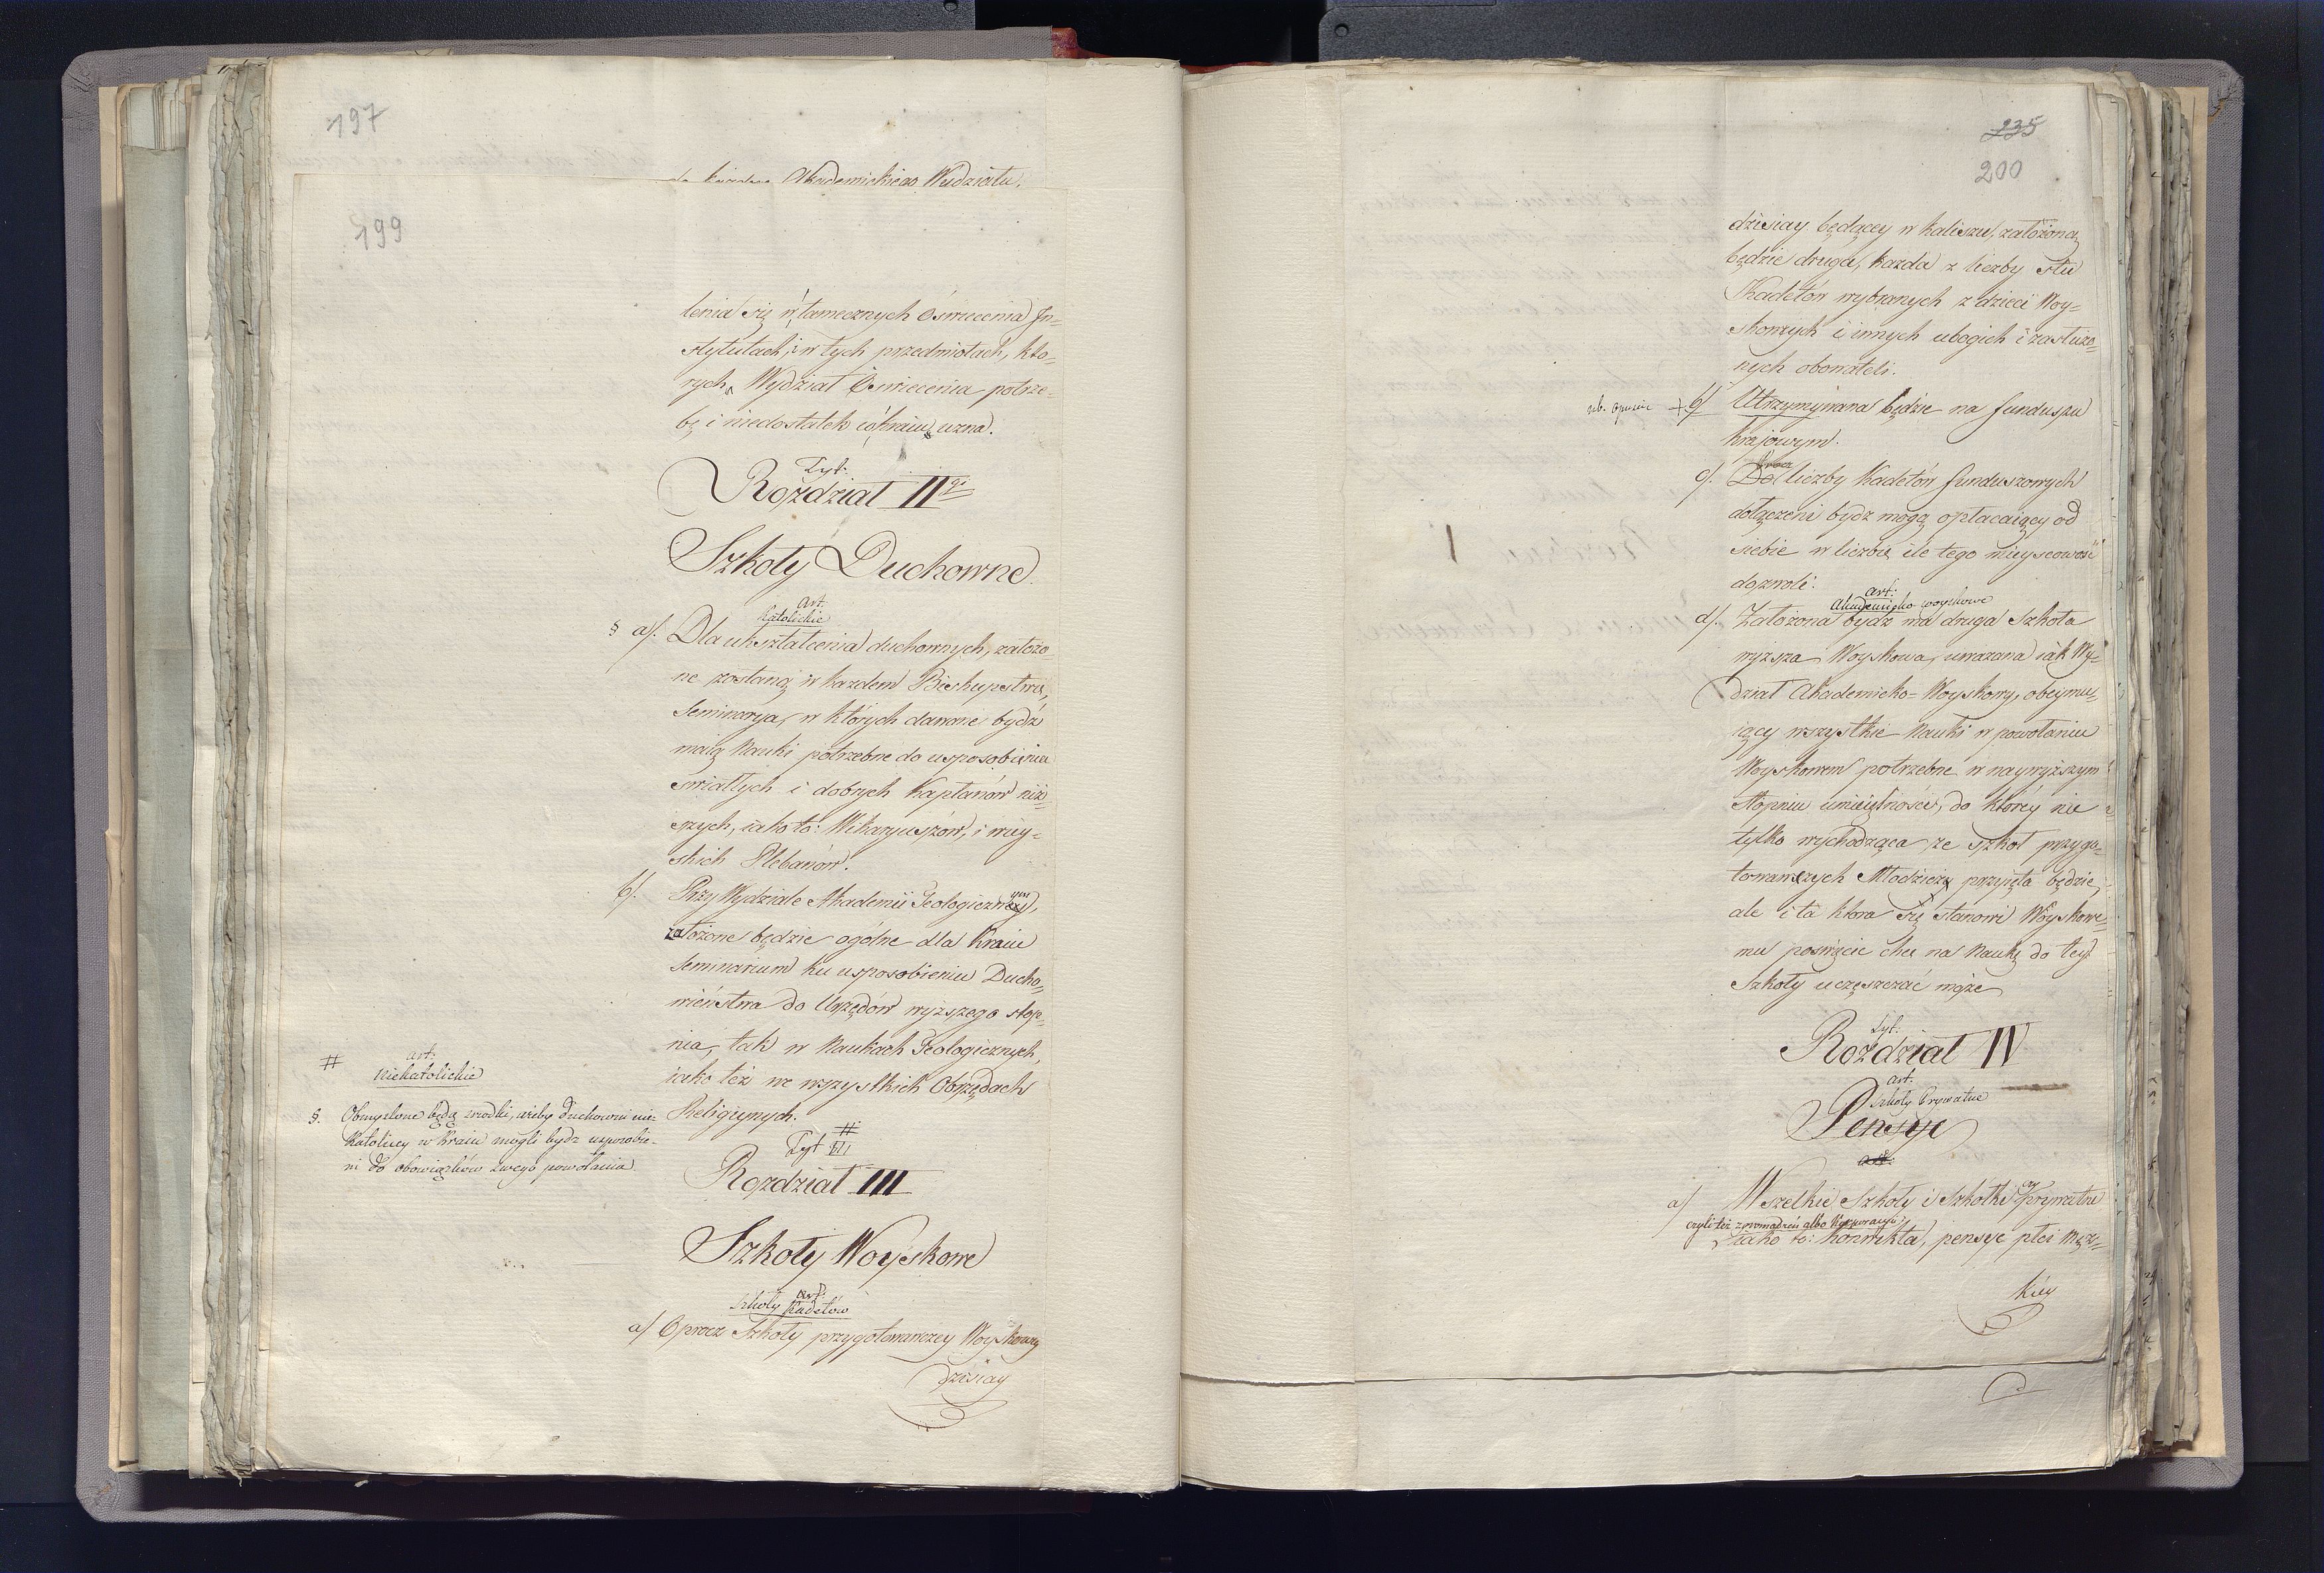 197
Akademickiego Wydziału.
199
lenia się w tamecznych Oświecenia In-
stytutach, i w tych przedmiotach, kto-
rych Wydział Oswiecenia potrze-
bę i niedostatek w kraiu uzna.
Tyt:
Rozdział II gi
Szkoły Duchowne
Art.
Katolickie
§ a/. Dla ukształcenia duchownych, założo-
ne zostaną w każdem Biskupstwie,
Seminarya, w których dawane bydź
maią Nauki potrzebne do usposobienia
swiatłych i dobrych Kapłanów niż-
szych, iako to: Wikaryuszów, i wiey-
skich Plebanów.
b/. Przy Wydziale Akademii Teologicznym,
założone będzie ogólne dla Kraiu
Seminarium ku usposobieniu Ducho-
wieństwa do Urzędów wyższego stop-
nia, tak w Naukach Teologicznych,
iako też we wszystkich Obrzędach
Religiynych.
#
# art:
Niekatolickie
§. Obmyslone będą srodki, ażeby Duchowni nie-
Katoliccy w Kraiu mogli bydz usposobie-
ni do obowiązków swego powołania.
Tyt III
Rozdział III
Szkoły Woyskowe
Art:
Szkoły Kadetów
a/ Oprocz Szkoły przygotowawczey Woyskowey
dzisiay
235
200
dzisiay będącey w Kaliszu, założona
będzie druga, każda z liczby Stu
Kadetów wybranych z dzieci Woy-
skowych i innych ubogich i zasłużo-
nych obywateli.
+ b/ Utrzymywana będzie na funduszu
krajowym.
c/. Do liczby Kadetów funduszowych
dołączeni bydz mogą opłacaiący od
siebie w liczbie ile tego mieyscowość
dozwoli.
art:
Akademicko woyskowe
d/. Założona bydz ma druga Szkoła
wyzsza Woyskowa, uważana iak Wy-
dział Akademicko-Woyskowy, obeymu-
iący wszystkie Nauki w powołaniu
Woyskowem potrzebne w naywyższym
stopniu umieiętności, do którey nie
tylko wychodząca ze szkoł przygo-
towawczych Młodzież przyięta będzie,
ale i ta ktora się stanowi Woyskowe-
mu poswięcić chce na Naukę do tey
Szkoły uczęszczać może
Tyt:
Rozdział IV
art.
Szkoły Prywatne
Pensye
art:
a/ Wszelkie Szkoły i Szkołki prywatne
czyli też zgromadzeń albo Korporacyi,
iako to: Konwikta, pensye płci Męz-
kiey